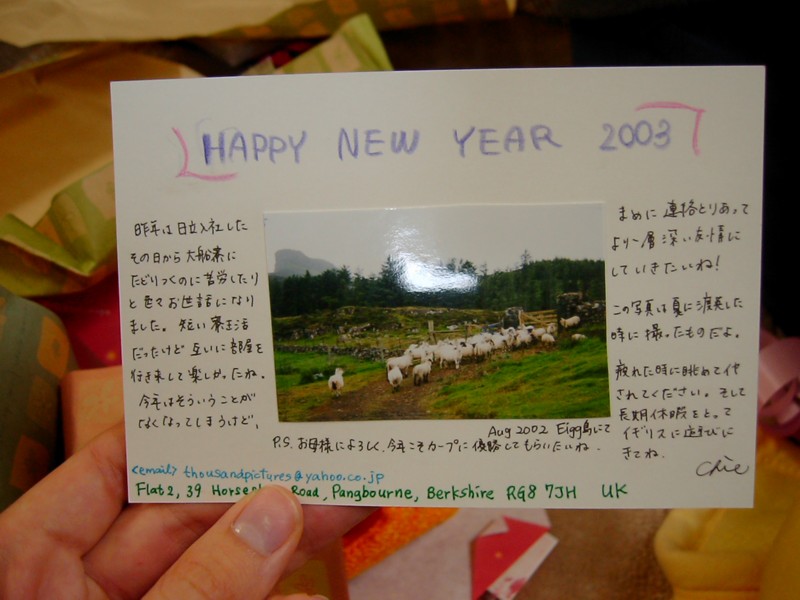 HAPPY NEW YEAR 2003
昨年は日立入社した
その日から大船寮に
たどりつくのに苦労したり
と色々お世話になり
ました。短い寮生活
だったけど互いに部屋を
行き来して楽しかったね。
今年はそういうことが
なくなってしまうけど、
まめに連絡とりあって
より一層深い友情に
していきたいね!
この写真は夏に渡英した
時に撮ったものだよ。
疲れた時に眺めてイヤ
されてください。そして
長期休暇をとって
イギリスに遊びに
きてね。
Chie
Aug 2002 Eigg島にて
P.S. お母様によろしく。今年こそカープに優勝してもらいたいね。
<email> thousandpictures@yahoo.co.jp
Flat 2, 39 Road, Pangbourne, Berkshire RG8 7JH UK